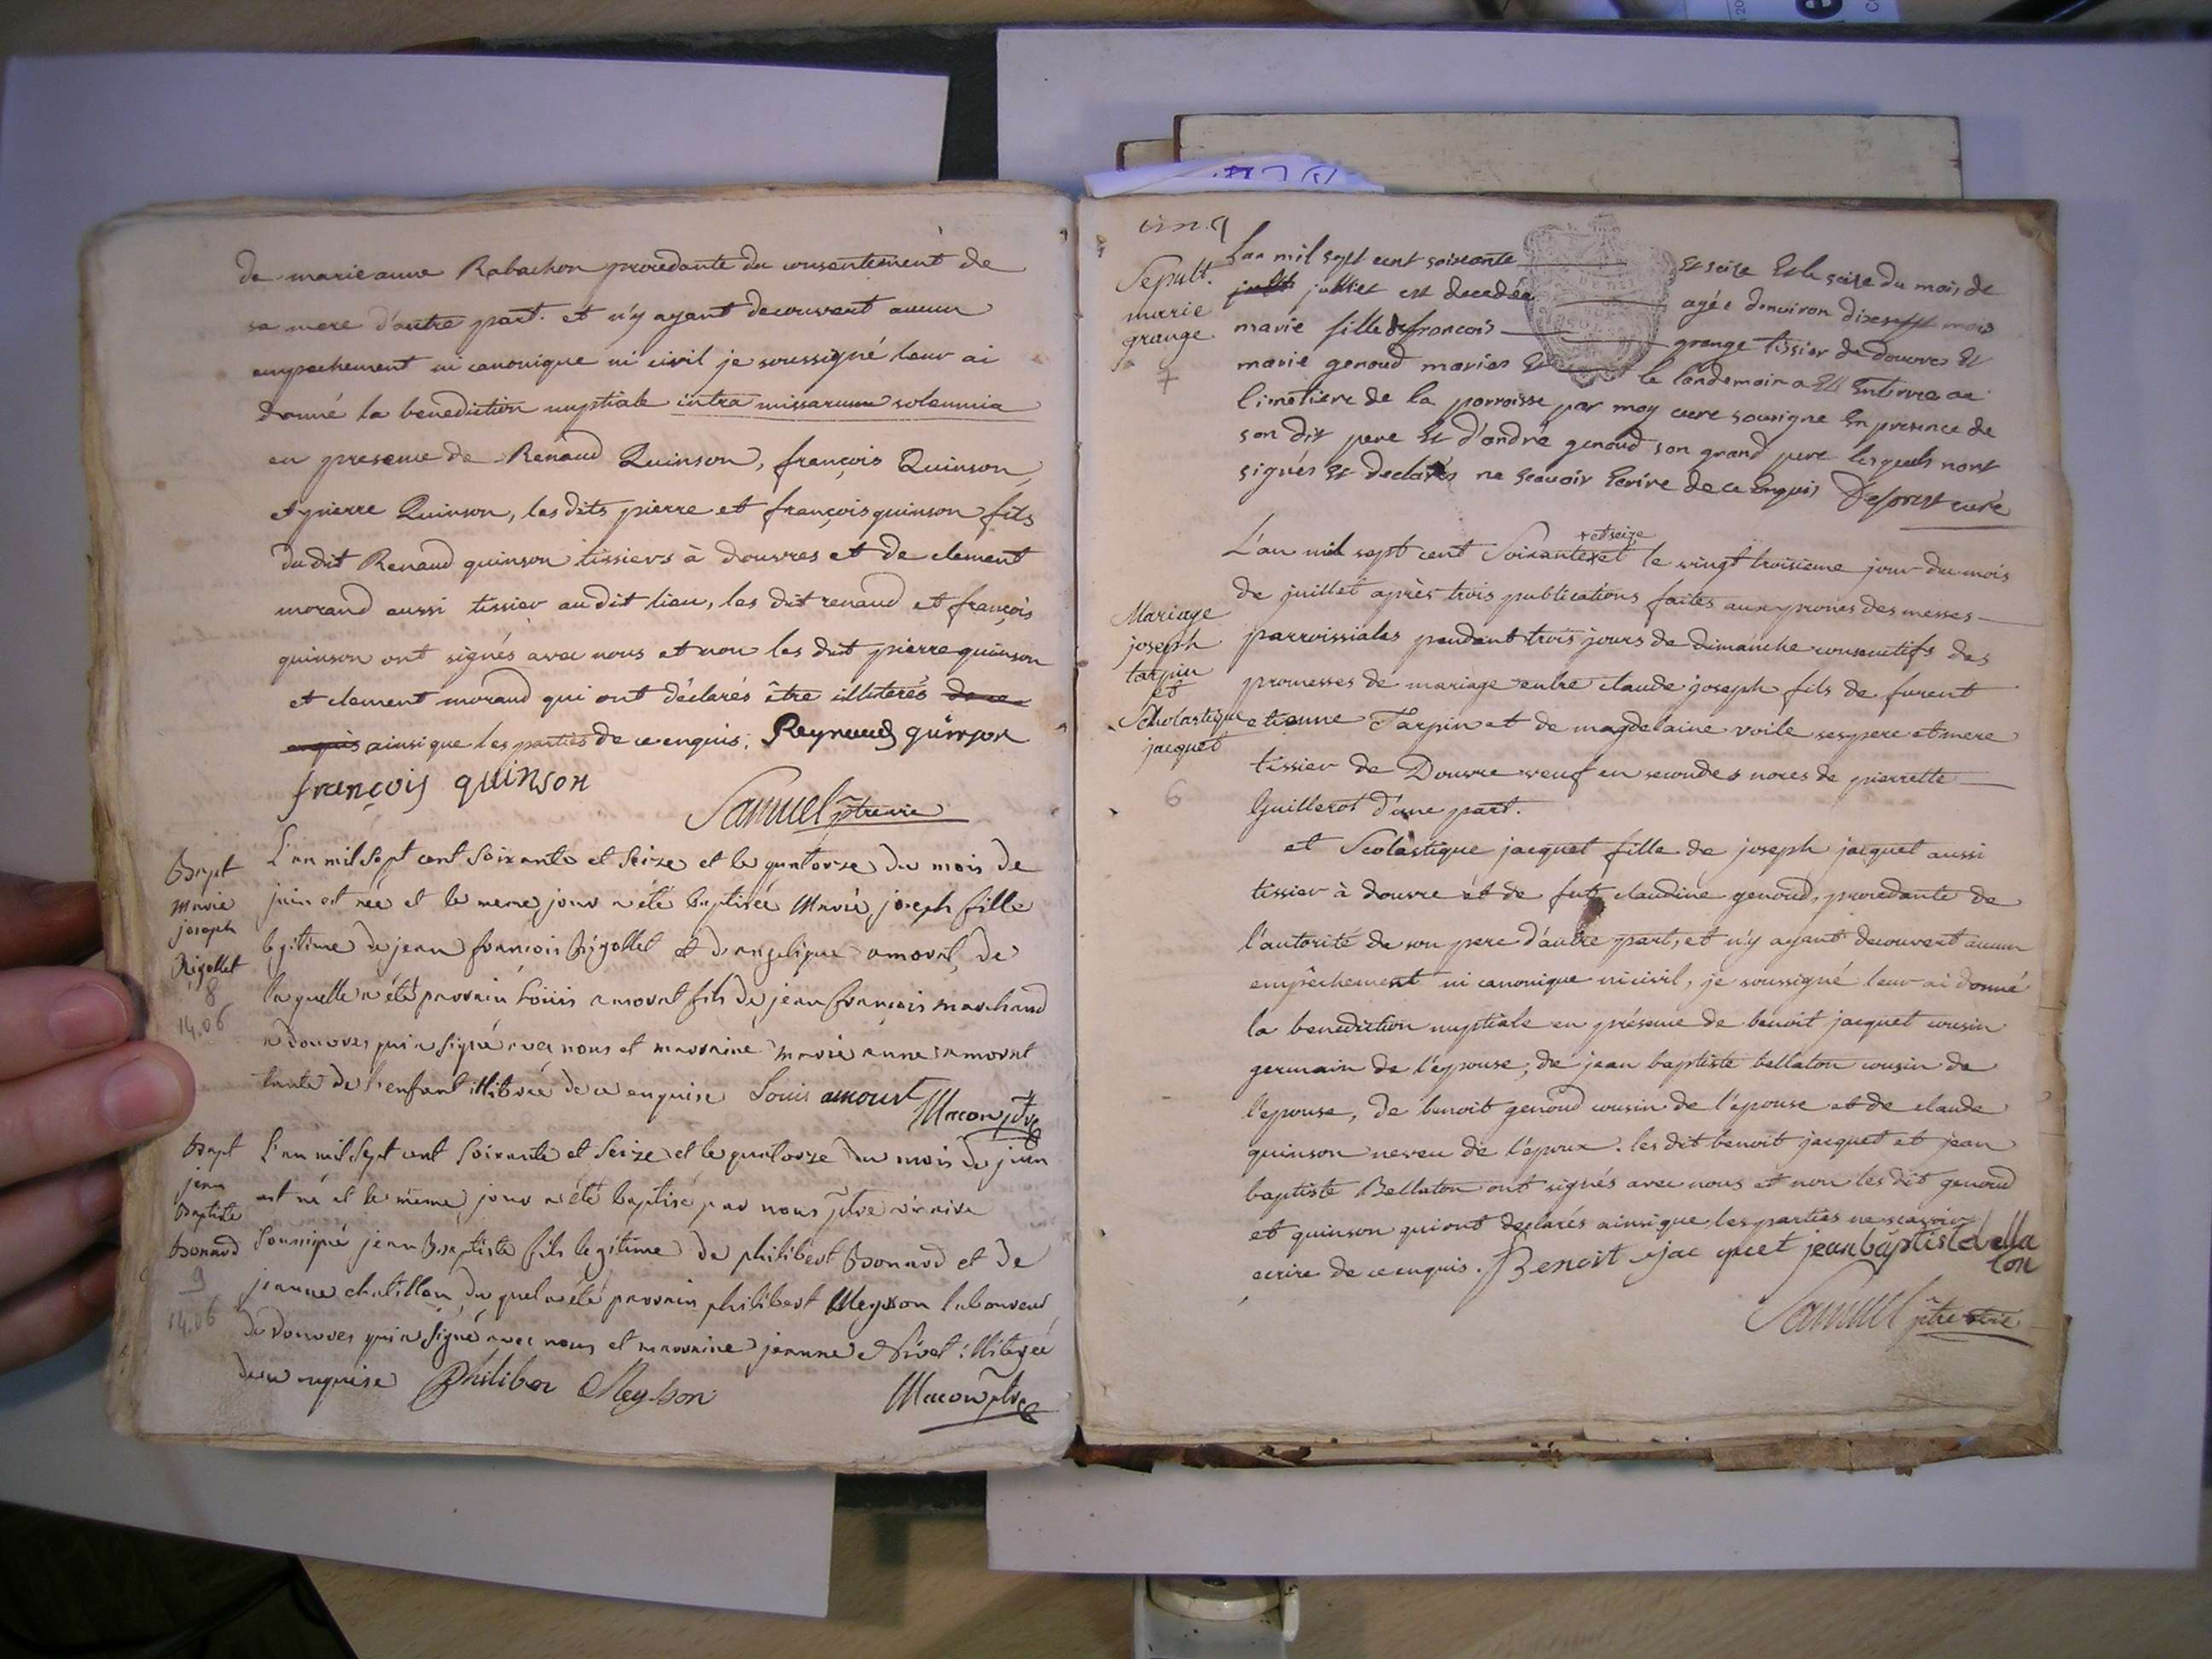 de marieanne Rabachon procedante du consentement de
sa mere d'autre part. et n'y ayant decouvert aucun
empechement ni canonique ni civil je soussigné leur ai
donné la benediction nuptiale intra missarum solemnia
en presence de Renaud Quinson, françois Quinson
et pierre Quinson, les dits pierre et françois quinson fils
du dit Renaud quinson tissiers à douvres et de clement
morand aussi tissier au dit lieu, les dit renaud et françois
quinson ont signés avec nous et non les dit pierre quinson
et clement morand qui ont déclarés être illiterés de ce
enquis ainsi que les parties de ce enquis. Reynaud quinson
françois quinson
Samuel ptre vic
Bapt
marie
joseph
Rigollet
8
14.06
L'an mil sept cent soixante et seize et le quatorze du mois de
juin est née et le meme jour a été baptisée Marie joseph fille
legitime de jean francois Rigollet et d'angelique amoret, de
laquelle a été parrain Loüis amoret fils de jean françois marchand
a douvres qui a signé avec nous et marraine marie anne amoret
tante de l'enfant illiterée de ce enquise Louis amouret
Macon ptre
Bapt
jean
Baptiste
Bonard
9
14.06
L'an mil sept cent soixante et seize et le quatorze du mois de juin
est né et le meme jour a été baptisé par nous ptre vicaire
soussigné jean Baptiste fils legitime de philibert Bonard et de
jeanne chatillon du quel a été parrain philibert Meysson laboureur
de douvres qui a signé avec nous et marraine jeanne Nivet illiterée
de ce enquise Philiber Meysson
Macon ptre
Sepult.
marie
grange
7
L'an mil sept cent soixante et seize Et le seize du mois de
jullt julliet est decedée agée d'enuiron dixsept mois
marie fille de francois grange tissier de douvres Et
marie genoud mariés Et le landemain a Eté Enterree au
cimetiere de la parroisse par moy cure sousigne En presence de
son dit pere Et d'andré genoud son grand pere lesquels n'ont
signés Et declarés ne scauoir Ecrire de ce Enquis Deforest curé
Mariage
joseph
tarpin
et
Scholastique
jacquet
6
+ et seize
L'an mil sept cent Soixante+et le vingt troisieme jour du mois
de juillet après trois publications faites aux prones des messes
parroissiales pendant trois jours de dimanche consecutifs des
promesses de mariage entre claude joseph fils de furent
etienne Tarpin et de magdelaine voile ses pere et mere
tissier de Douvre veuf en secondes noces de pierrette
Guillerot d'une part.
et Scolastique jacquet fille de joseph jacquet aussi
tissier à douvre et de fut claudine genoud, procedante de
l'autorité de son pere d'autre part, et n'y ayant decouvert aucun
empêchement ni canonique ni civil, je soussigné leur ai donné
la benediction nuptiale en présence de benoit jacquet cousin
germain de l'épouse, de jean baptiste bellaton cousin de
l'epouse, de benoit genoud cousin de l'épouse et de claude
quinson neveu de l'époux. les dit benoit jacquet et jean
baptiste Bellaton ont signés avec nous et non les dit genoud
et quinson qui ont declarés ainsi que les parties ne scavoir
ecrire de ce enquis. Benoit jac quet jean baptiste bella
ton
Samuel ptre vic